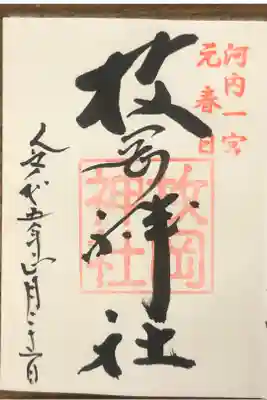 河内一宮
元春日
枚岡神社
枚岡
神社
令和五年正月二十一日